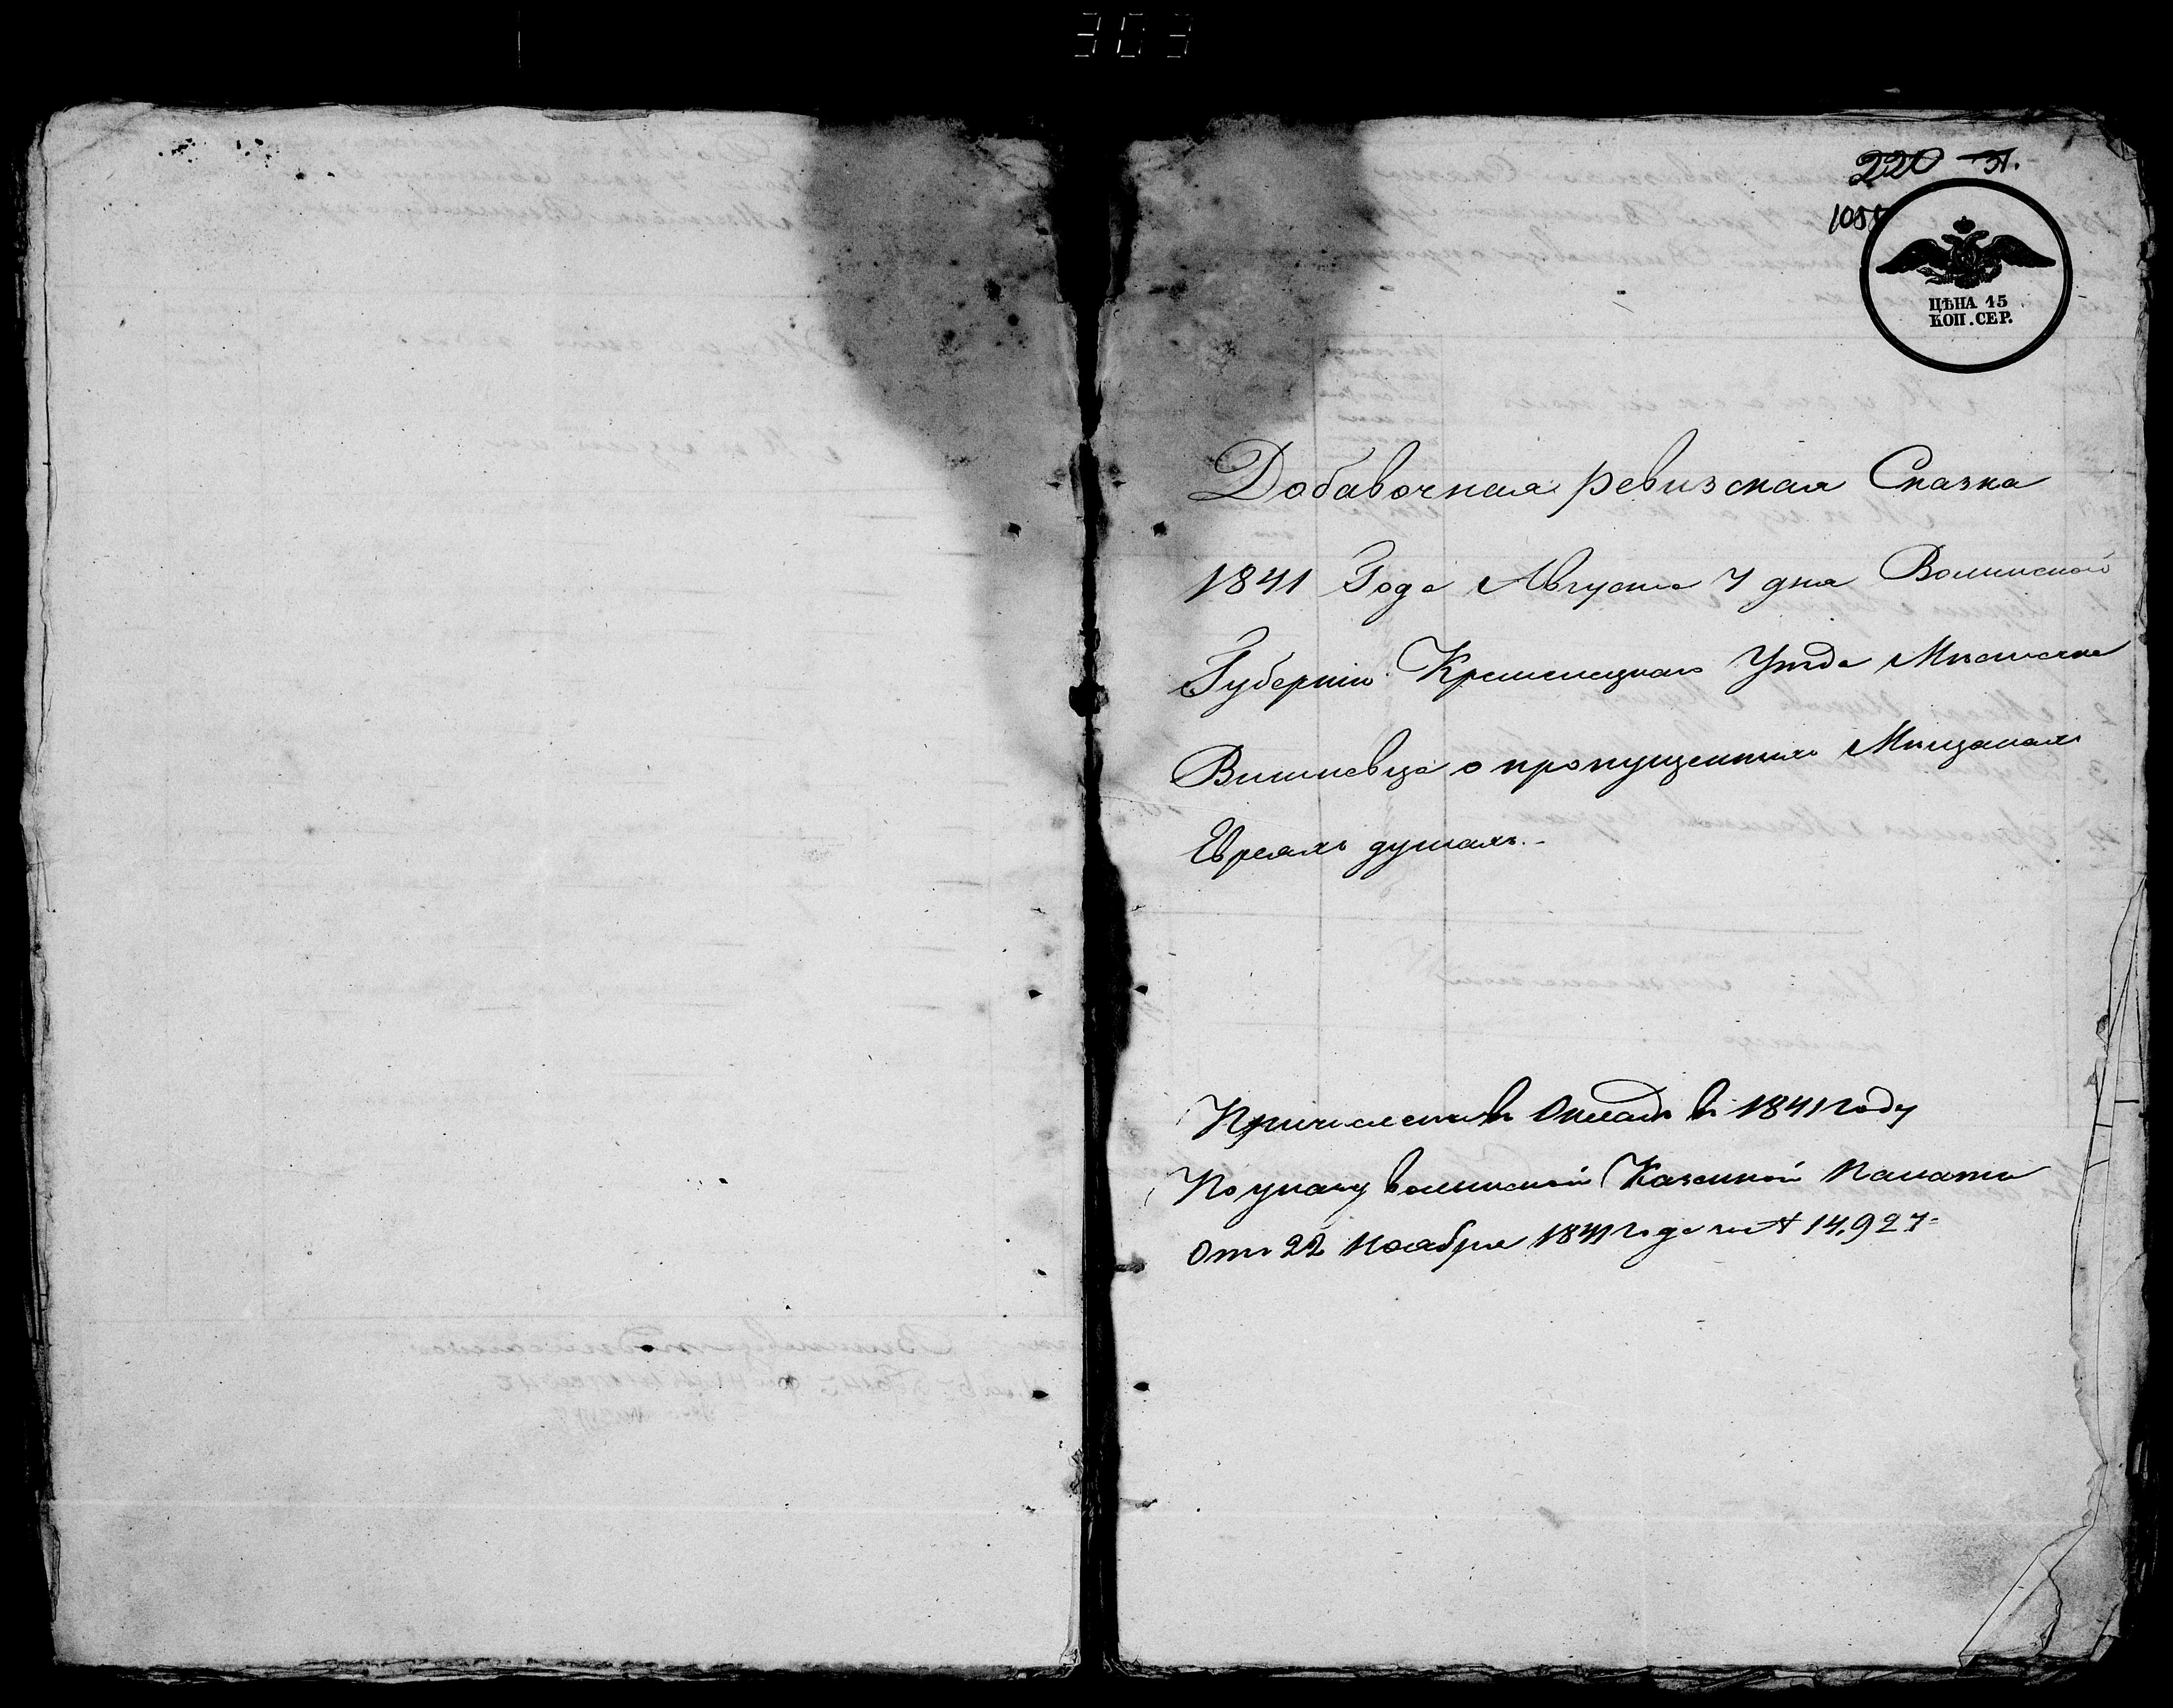 303
220 31.
108
ЦѢНА 15
КОП. СЕР.
Добавочная ревизская Сказка
1841 Года Августа 7 дня Волынской
Губерніи Кременецкаго Уѣзда Мѣстечка
Вишневца о пропущенныхъ Мѣщанахъ
Евреяхъ душахъ.-
Причислены въ Окладъ въ 1841 году
По указу Волынской Казенной Палаты
Отъ 22 Ноября 1841 года за № 14,927